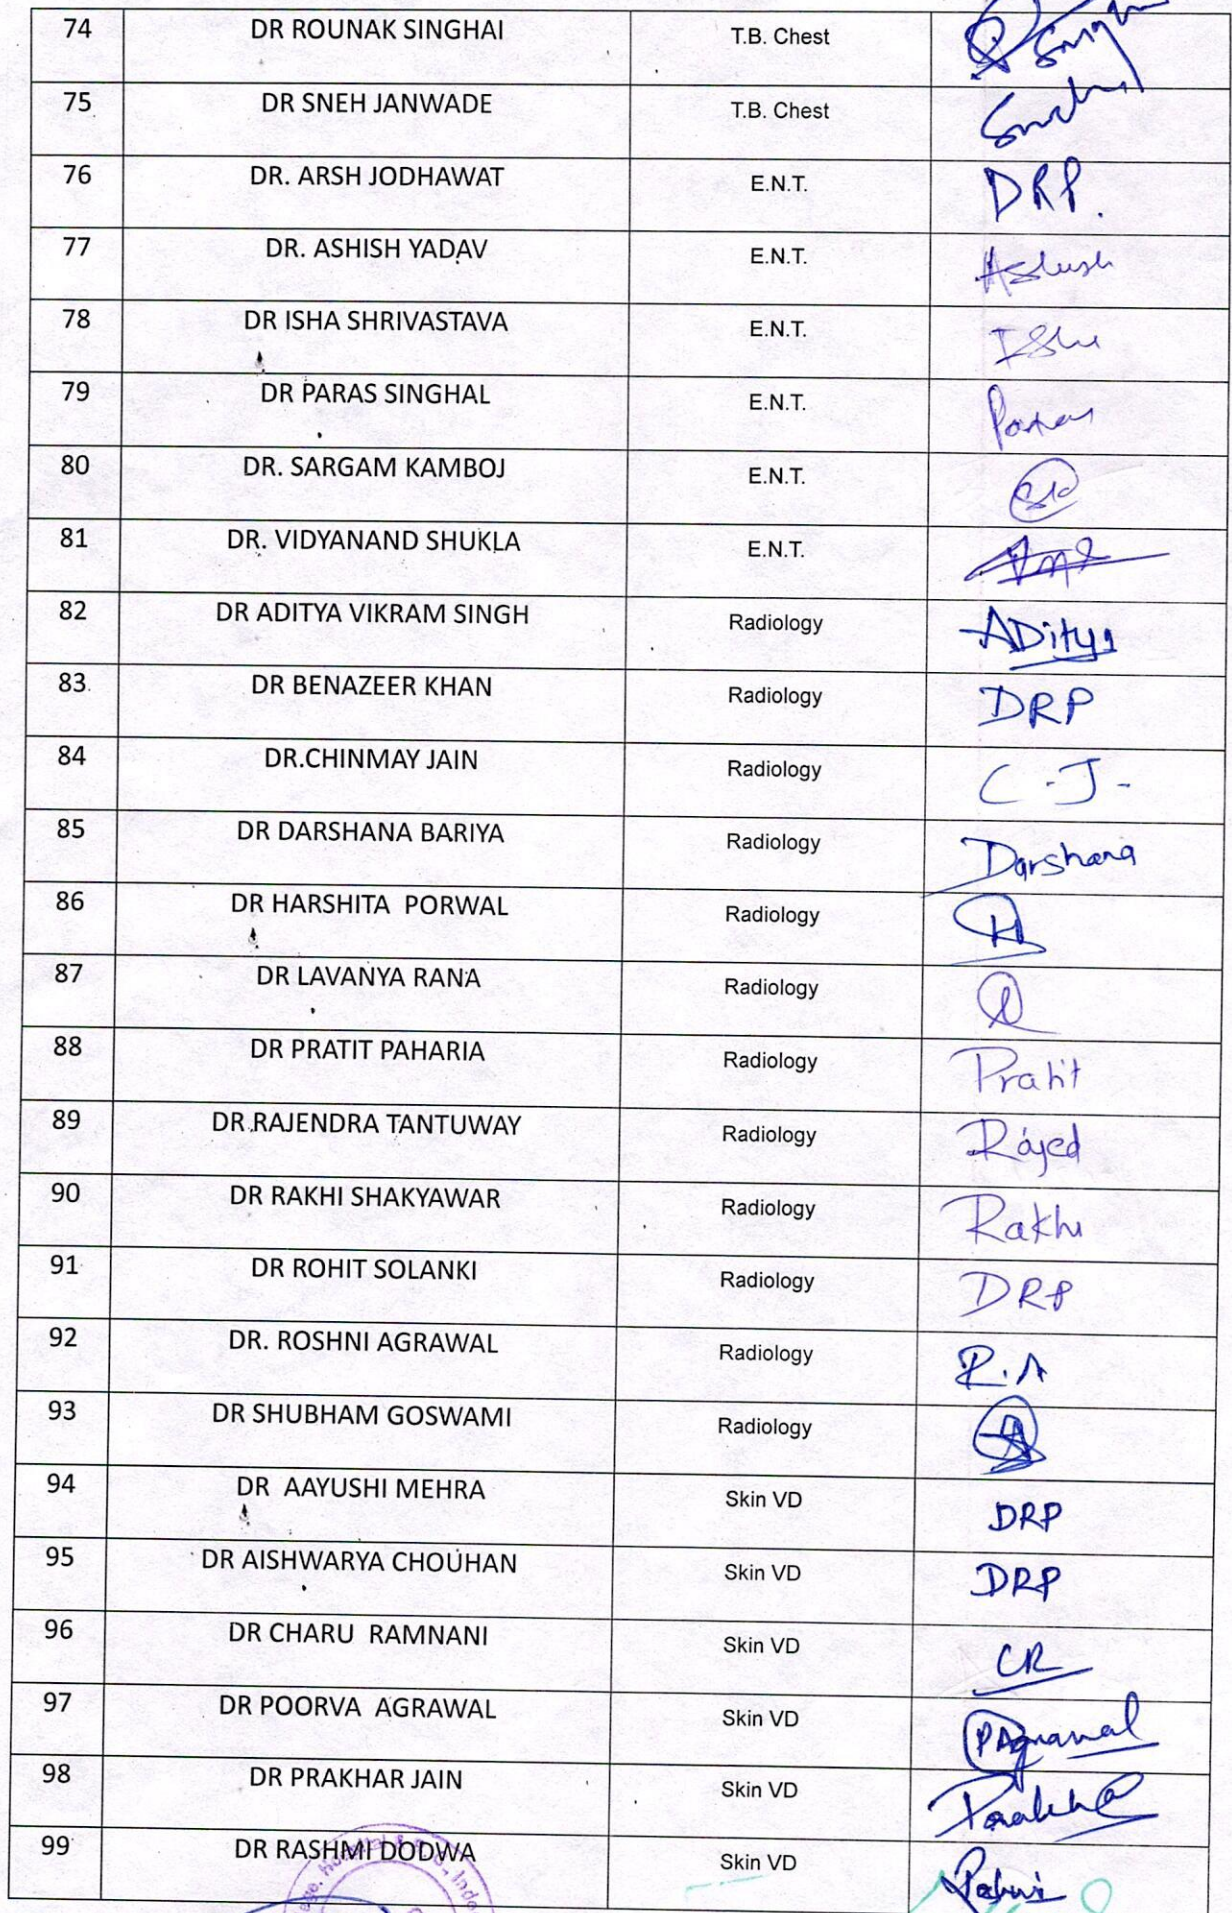 74 DR ROUNAK SINGHAI T.B. Chest
75 DR SNEH JANWADE T.B. Chest
76 DR. ARSH JODHAWAT E.N.T. DRP.
77 DR. ASHISH YADAV E.N.T. Ashish
78 DR ISHA SHRIVASTAVA E.N.T. Isha
79 DR PARAS SINGHAL E.N.T. Paras
80 DR. SARGAM KAMBOJ E.N.T.
81 DR. VIDYANAND SHUKLA E.N.T.
82 DR ADITYA VIKRAM SINGH Radiology ADitya
83 DR BENAZEER KHAN Radiology DRP
84 DR.CHINMAY JAIN Radiology C.J-
85 DR DARSHANA BARIYA Radiology Darshana
86 DR HARSHITA PORWAL Radiology H
87 DR LAVANYA RANA Radiology
88 DR PRATIT PAHARIA Radiology Pratit
89 DR RAJENDRA TANTUWAY Radiology
90 DR RAKHI SHAKYAWAR Radiology Rakhi
91 DR ROHIT SOLANKI Radiology DRP
92 DR. ROSHNI AGRAWAL Radiology R.A
93 DR SHUBHAM GOSWAMI Radiology
94 DR AAYUSHI MEHRA Skin VD DRP
95 DR AISHWARYA CHOUHAN Skin VD DRP
96 DR CHARU RAMNANI Skin VD CR
97 DR POORVA AGRAWAL Skin VD PAgrawal
98 DR PRAKHAR JAIN Skin VD
99 DR RASHMI DODWA Skin VD